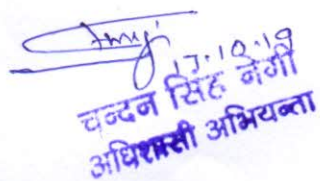 17.10.19
चन्दन सिंह नेगी
अधिशासी अभियन्ता